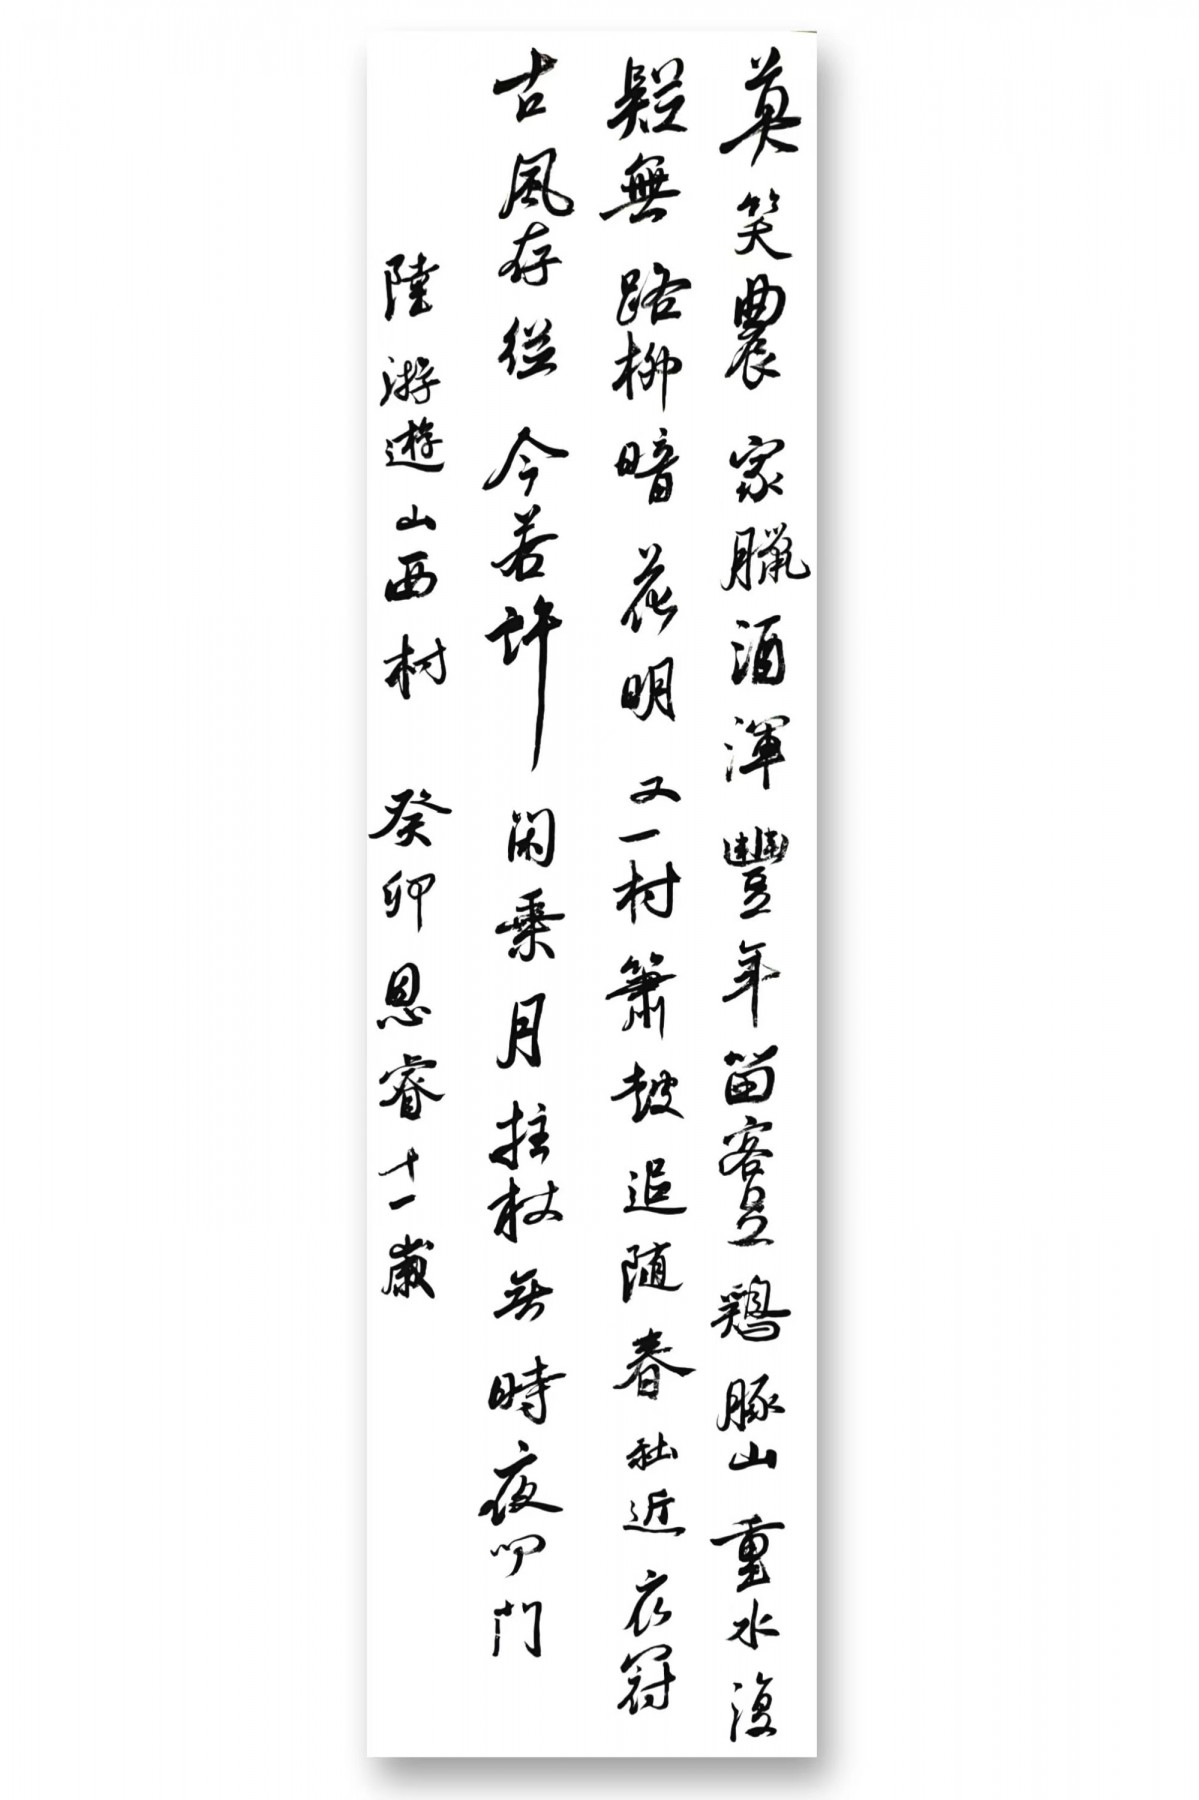 莫笑農家臘酒渾豐年留客足鶏豚山重水復
疑無路柳暗花明又一村簫鼓追随春社近衣冠
古風存從今若許閑乘月拄杖無時夜叩門
陸游遊山西村 癸卯恩睿十一歲